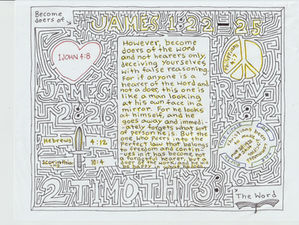 Become
doers of
JAMES 1:22-25
1 JOHN 4:8
However, become
doers of the word
and not hearers only,
deceiving yourselves
with false reasoning.
For if anyone is a
hearer of the word and
not a doer, this one is
like a man looking
at his own face in a
mirror. For he looks
at himself, and he
goes away and immedi-
ately forgets what sort
of person he is. But the
one who peers into the
perfect law that belongs
to freedom and continu-
es in it has become, not
a forgetful hearer, but a
doer of the work; and he will
be happy in what he does
Hebrews
4:12
10:4
2 TIMOTHY 3:
The Word